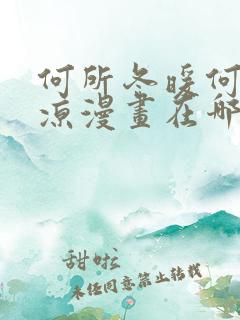 何所冬暖何
凉漫畫在哪
甜啦
未经同意禁止转载